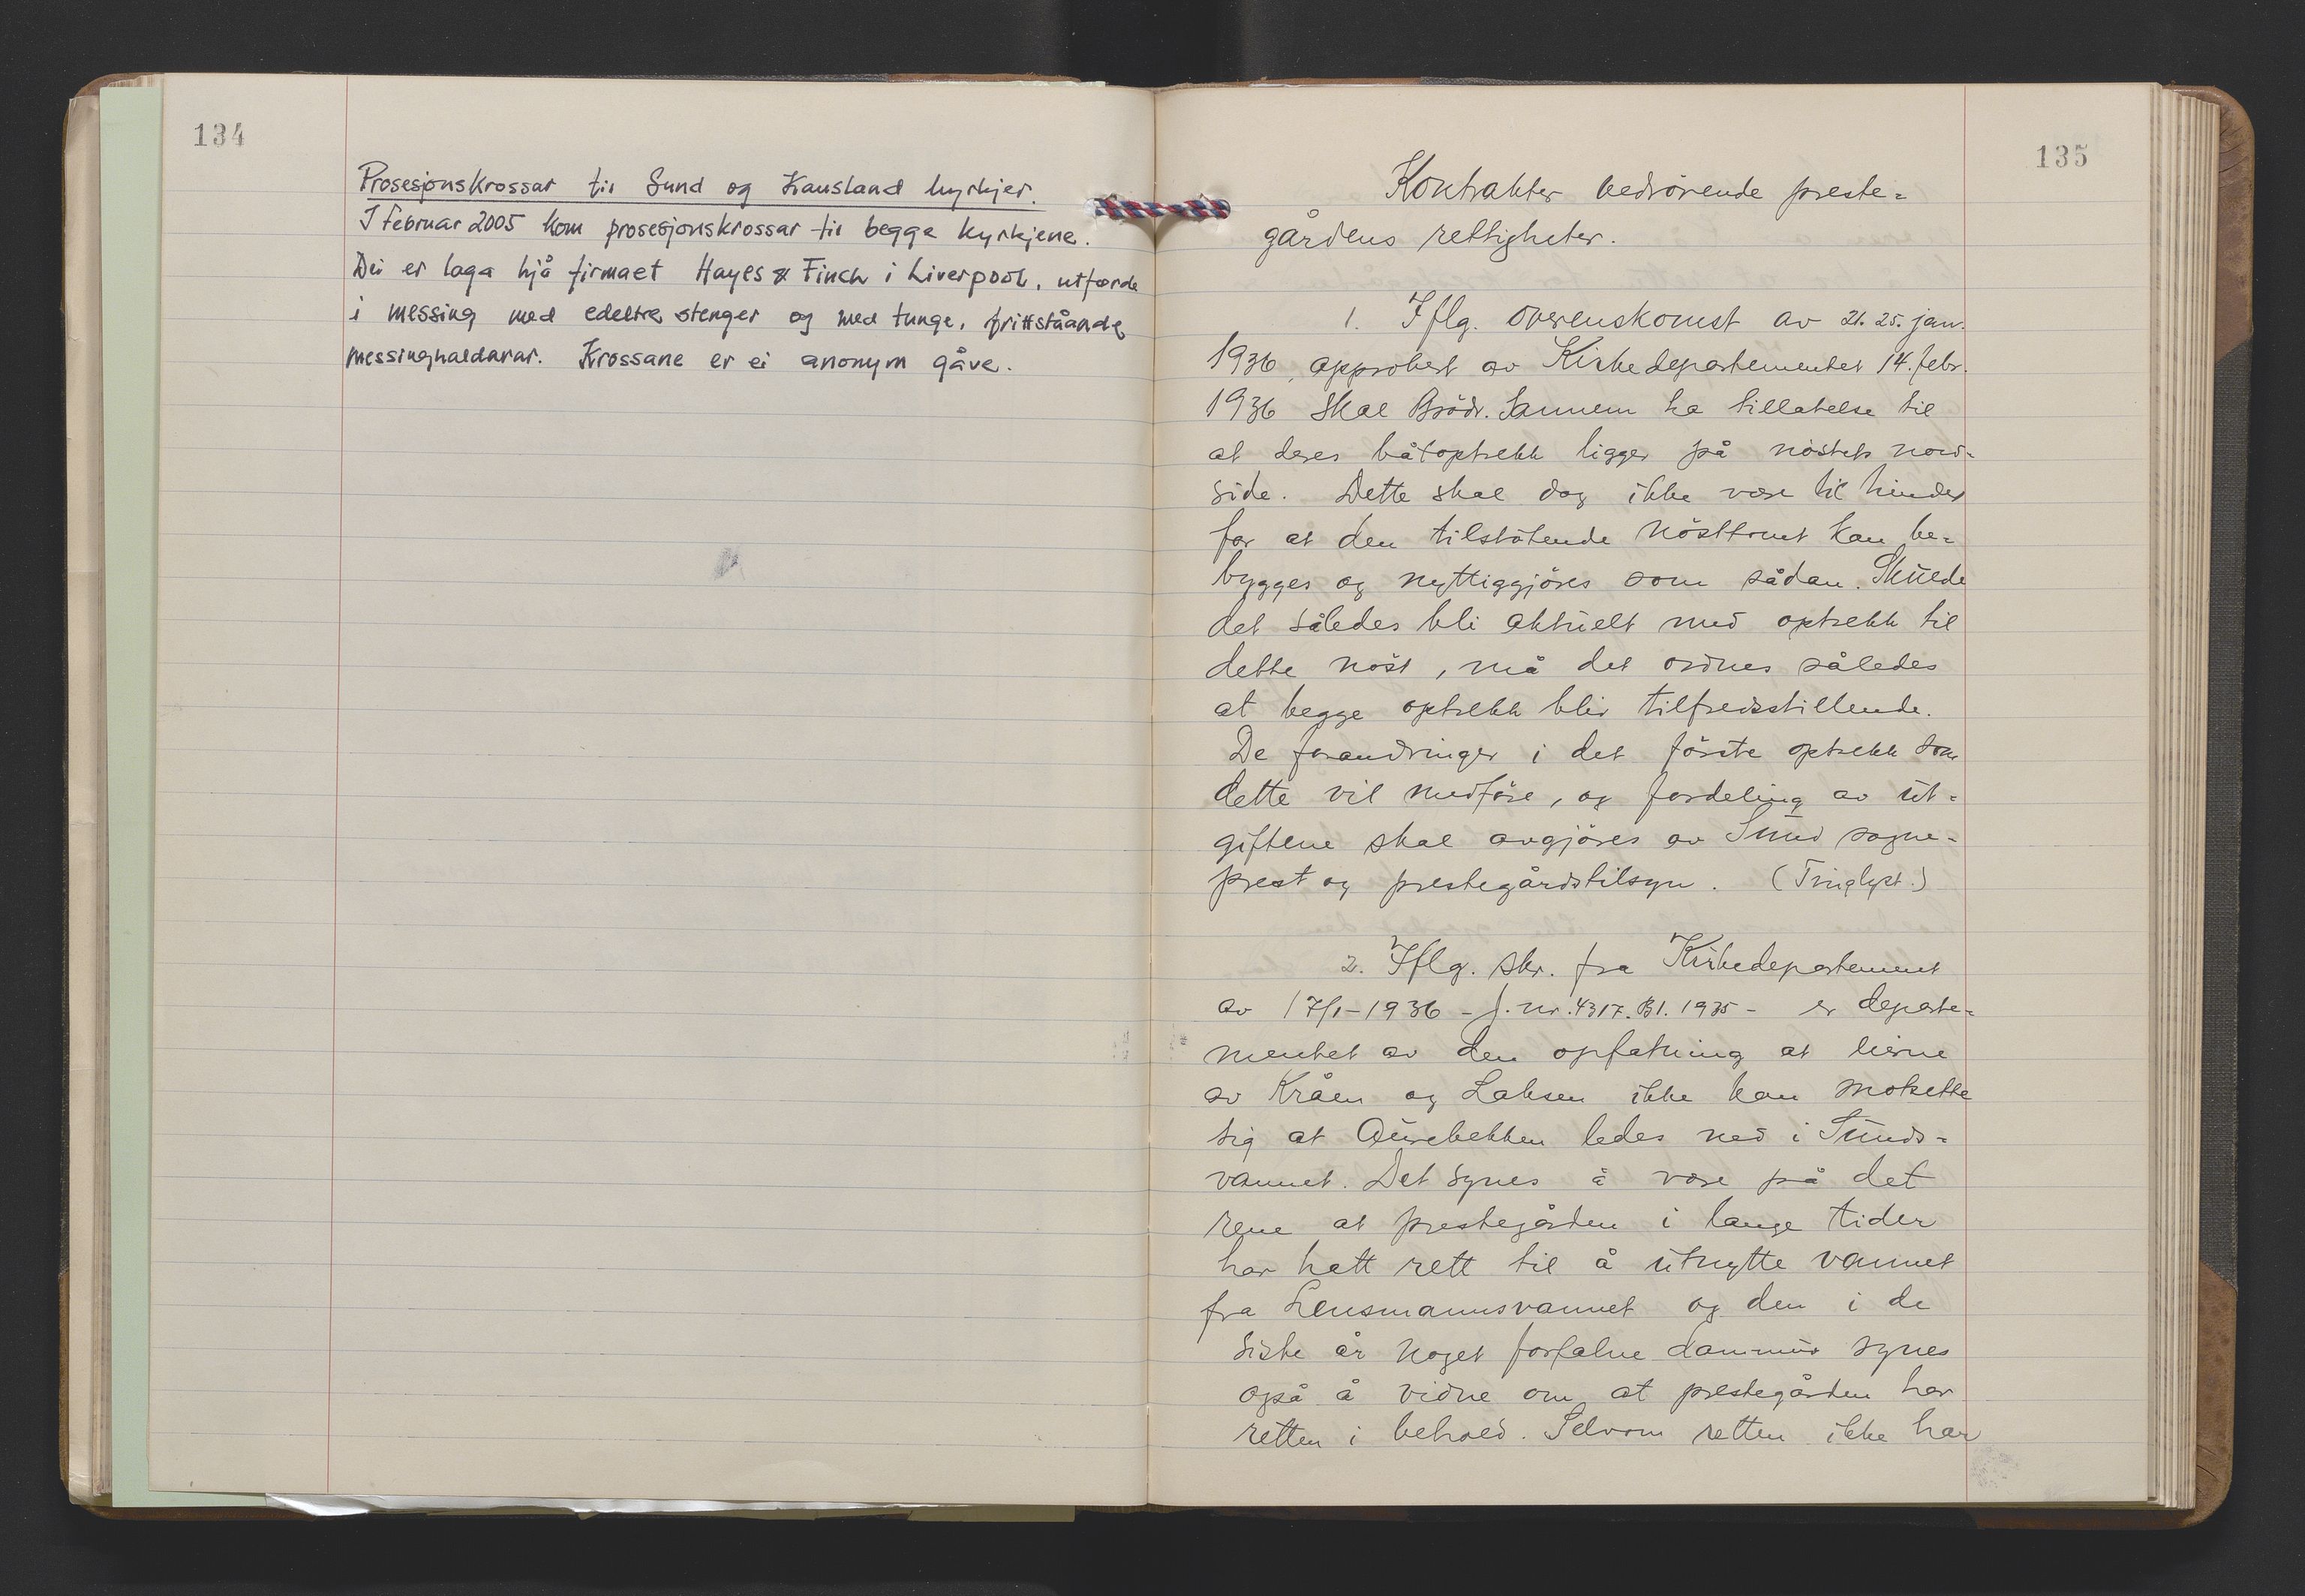 134
Prosesjonskrossar til Sund og Kausland kyrkjer.
I februar 2005 kom prosesjonskrossar til begge kyrkjene.
Dei er laga hjå firmaet Hayes & Finch i Liverpool, utførde
i messing med edeltre stenger og med tunge, frittståande
messinghaldarar. Krossane er ei anonym gåve.
135
Kontrakter vedrörende preste-
gårdens rettigheter.
1. Iflg. overenskomst av 21. 25. jan.
1936, approbert av Kirkedepartementet 14. febr.
1936 skal Brödr. Sannem ha tillatelse til
at deres båtoptrekk ligger på nöstets nord-
side. Dette skal dog ikke være til hinder
for at den tilstötende nösttomt kan be-
bygges og nyttiggjöres som sådan. Skulde
det således bli aktuelt med optrekk til
dette nöst, må det ordnes således
at begge optrekk blir tilfredsstillende.
De forandringer i det förste optrekk som
dette vil medföre, og fordeling av ut-
giftene skal avgjöres av Sund sogne-
prest og prestegårdstilsyn. (Tinglyst.)
2. Iflg. skr. fra Kirkedepartement
av 17/1-1936 - J. nr. 4317. B1. 1935 - er departe-
mentet av den opfatning at eierne
av Kråen og Laksen ikke kan motsette
sig at Aurebekken ledes ned i Sunds-
vannet. Det synes å være på det
rene at prestegården i lange tider
har hatt rett til å utnytte vannet
fra Lensmannsvannet og den i de
siste år noget forfalne dammur synes
også å vidne om at prestegården har
retten i behold. Selvom retten ikke har